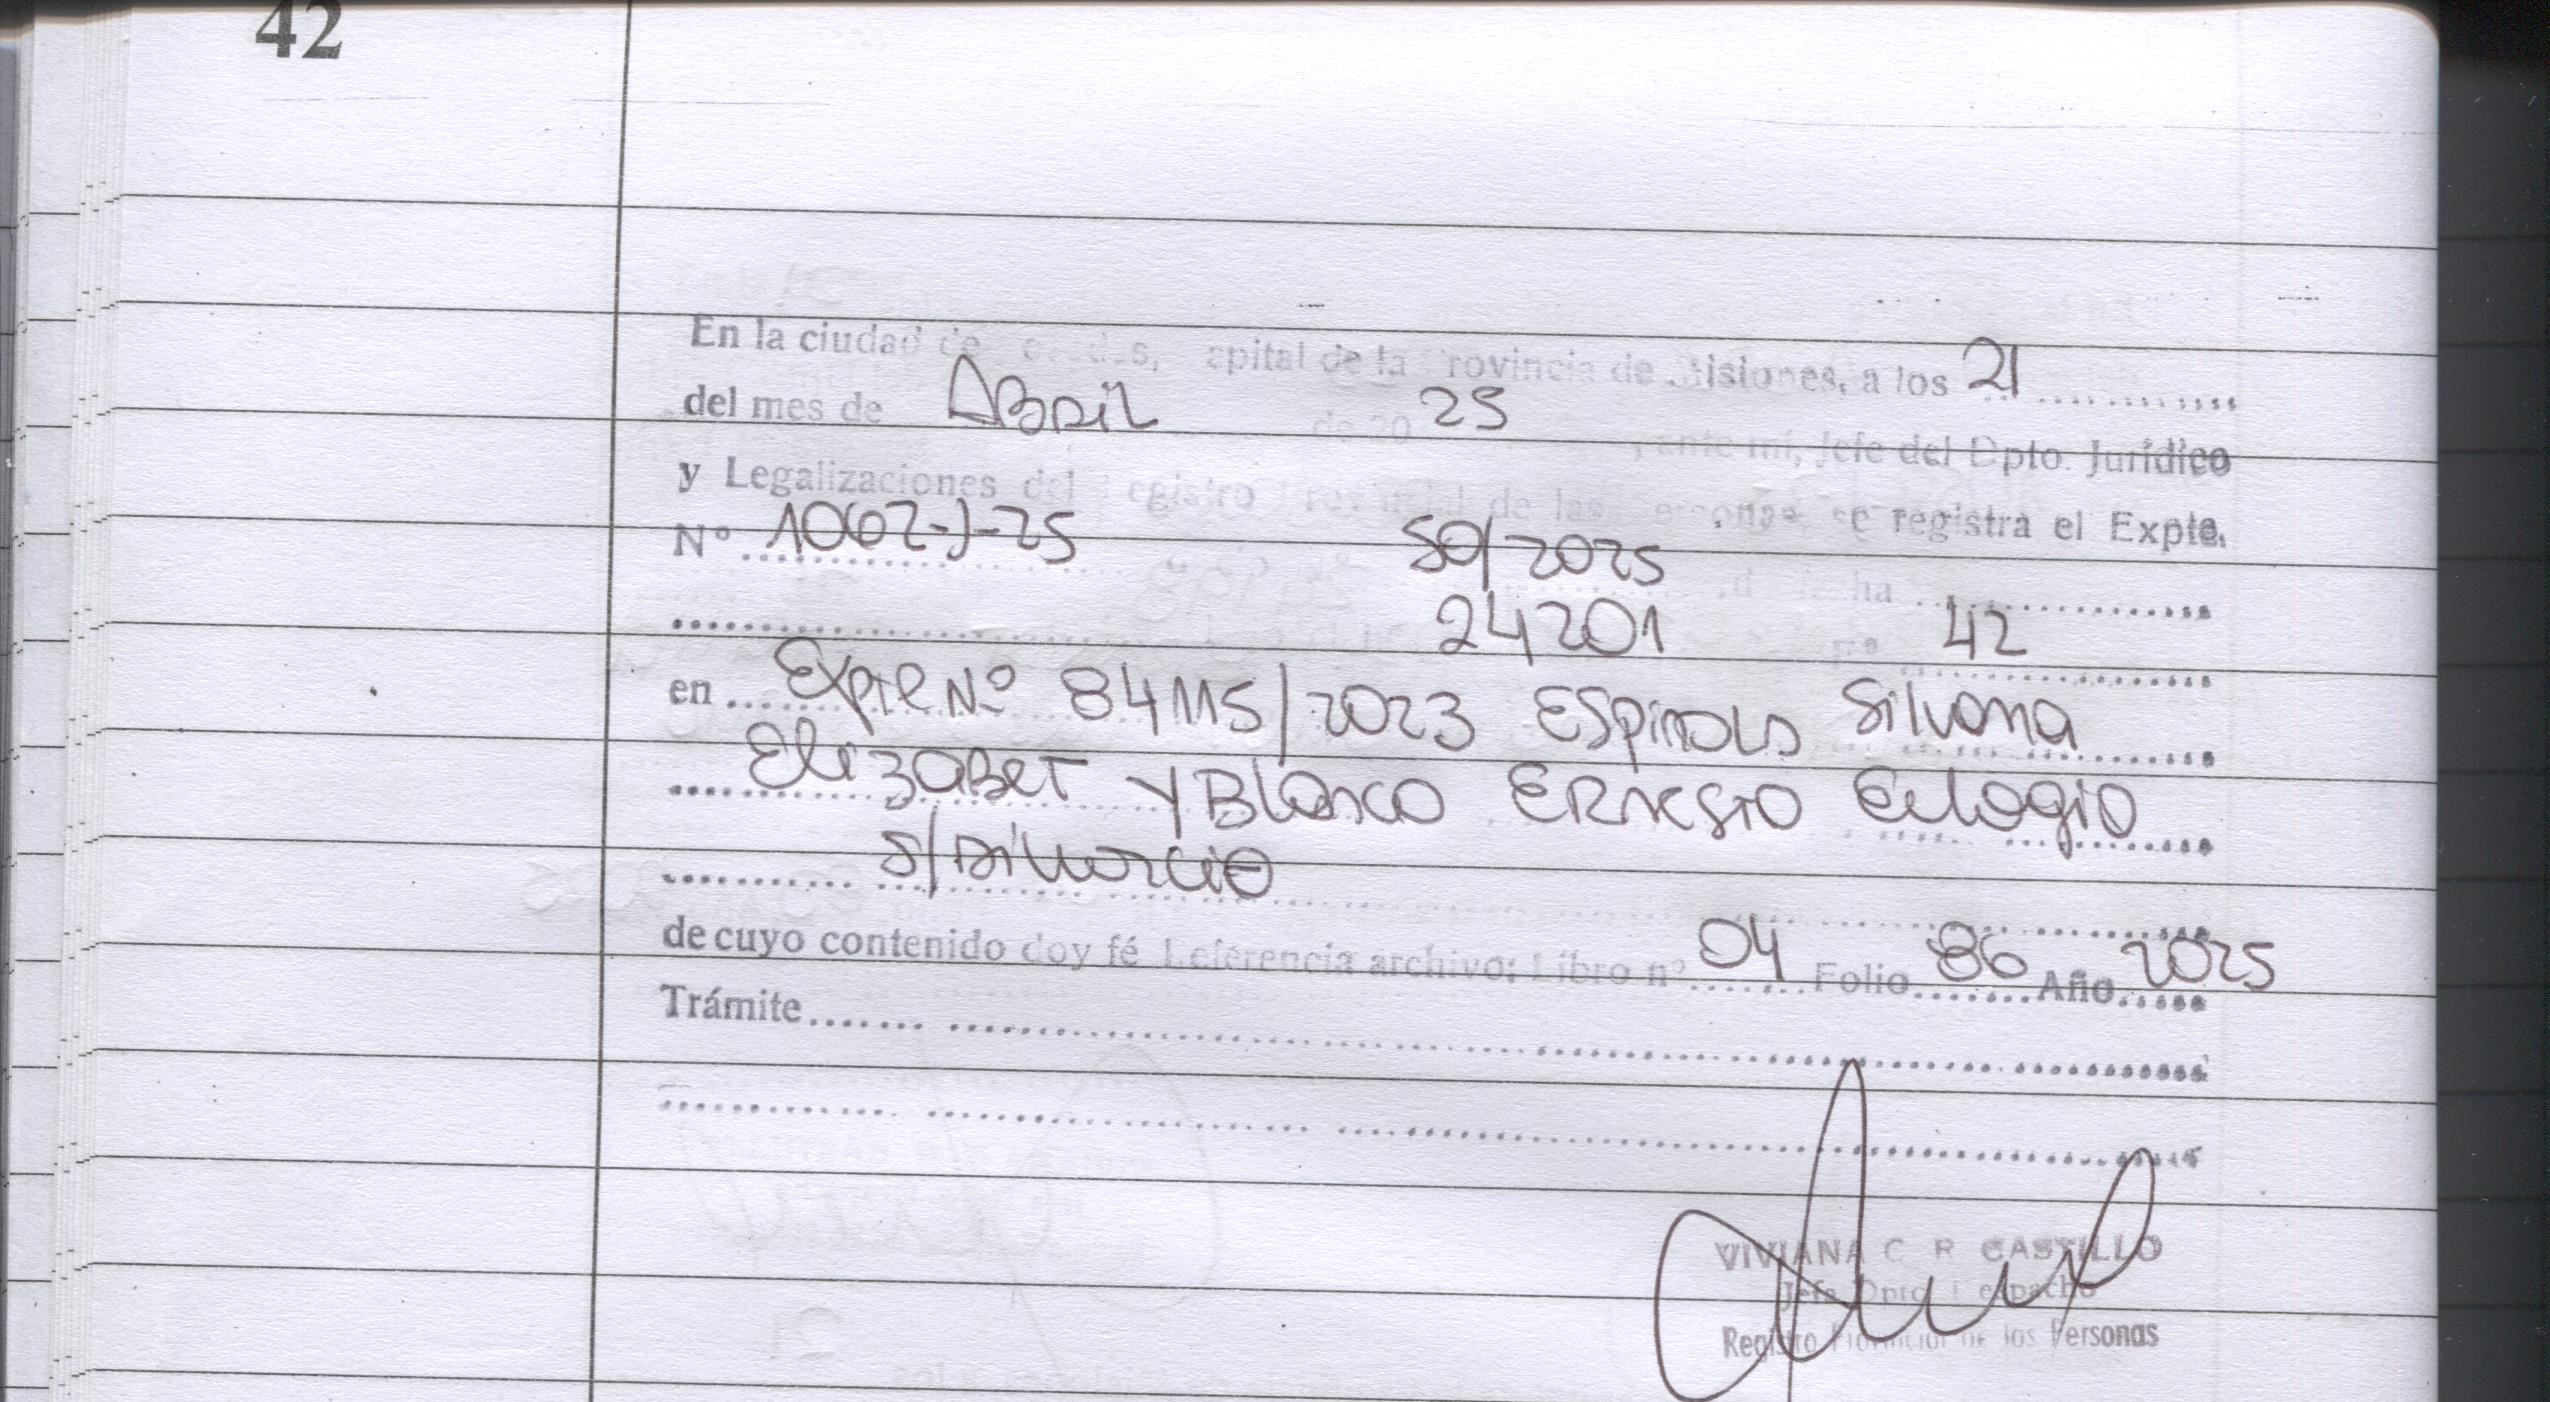 42
En la ciudad de Posadas, Capital de la Provincia de Misiones, a los 21
del mes de Abril de 20 25, ante mí, Jefe del Dpto. Jurídico
y Legalizaciones del Registro Provincial de las Personas se registra el Expte.
Nº 1062-J-25 50/2025
24201 42
en Expte Nº 84115/2023 Espinola Silvana
Elizabet y Blanco Ernesto Eulogio
s/Divorcio
de cuyo contenido doy fé Referencia archivo: Libro nº 04 Folio 86 Año 2025
Trámite
VIVIANA C R CASTILLO
Jefe Dpto Despacho
Registro Provincial de las Personas